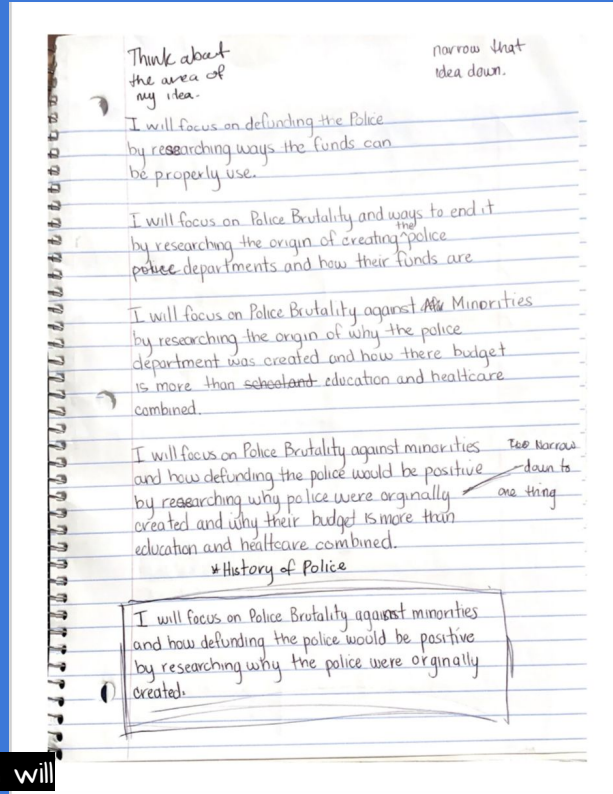 Think about
the area of
my idea.
narrow that
idea down.
I will focus on defunding the Police
by researching ways the funds can
be properly use.
I will focus on Police Brutality and ways to end it
by researching the origin of creating the police
police departments and how their funds are
I will focus on Police Brutality against Minorities
by researching the origin of why the police
department was created and how there budget
is more than school and education and healtcare
combined.
I will focus on Police Brutality against minorities
and how defunding the police would be positive
by researching why police were orginally
created and why their budget is more than
education and healtcare combined.
Narrow
down to
one thing
*History of Police
I will focus on Police Brutality against minorities
and how defunding the police would be positive
by researching why the police were orginally
created.
will